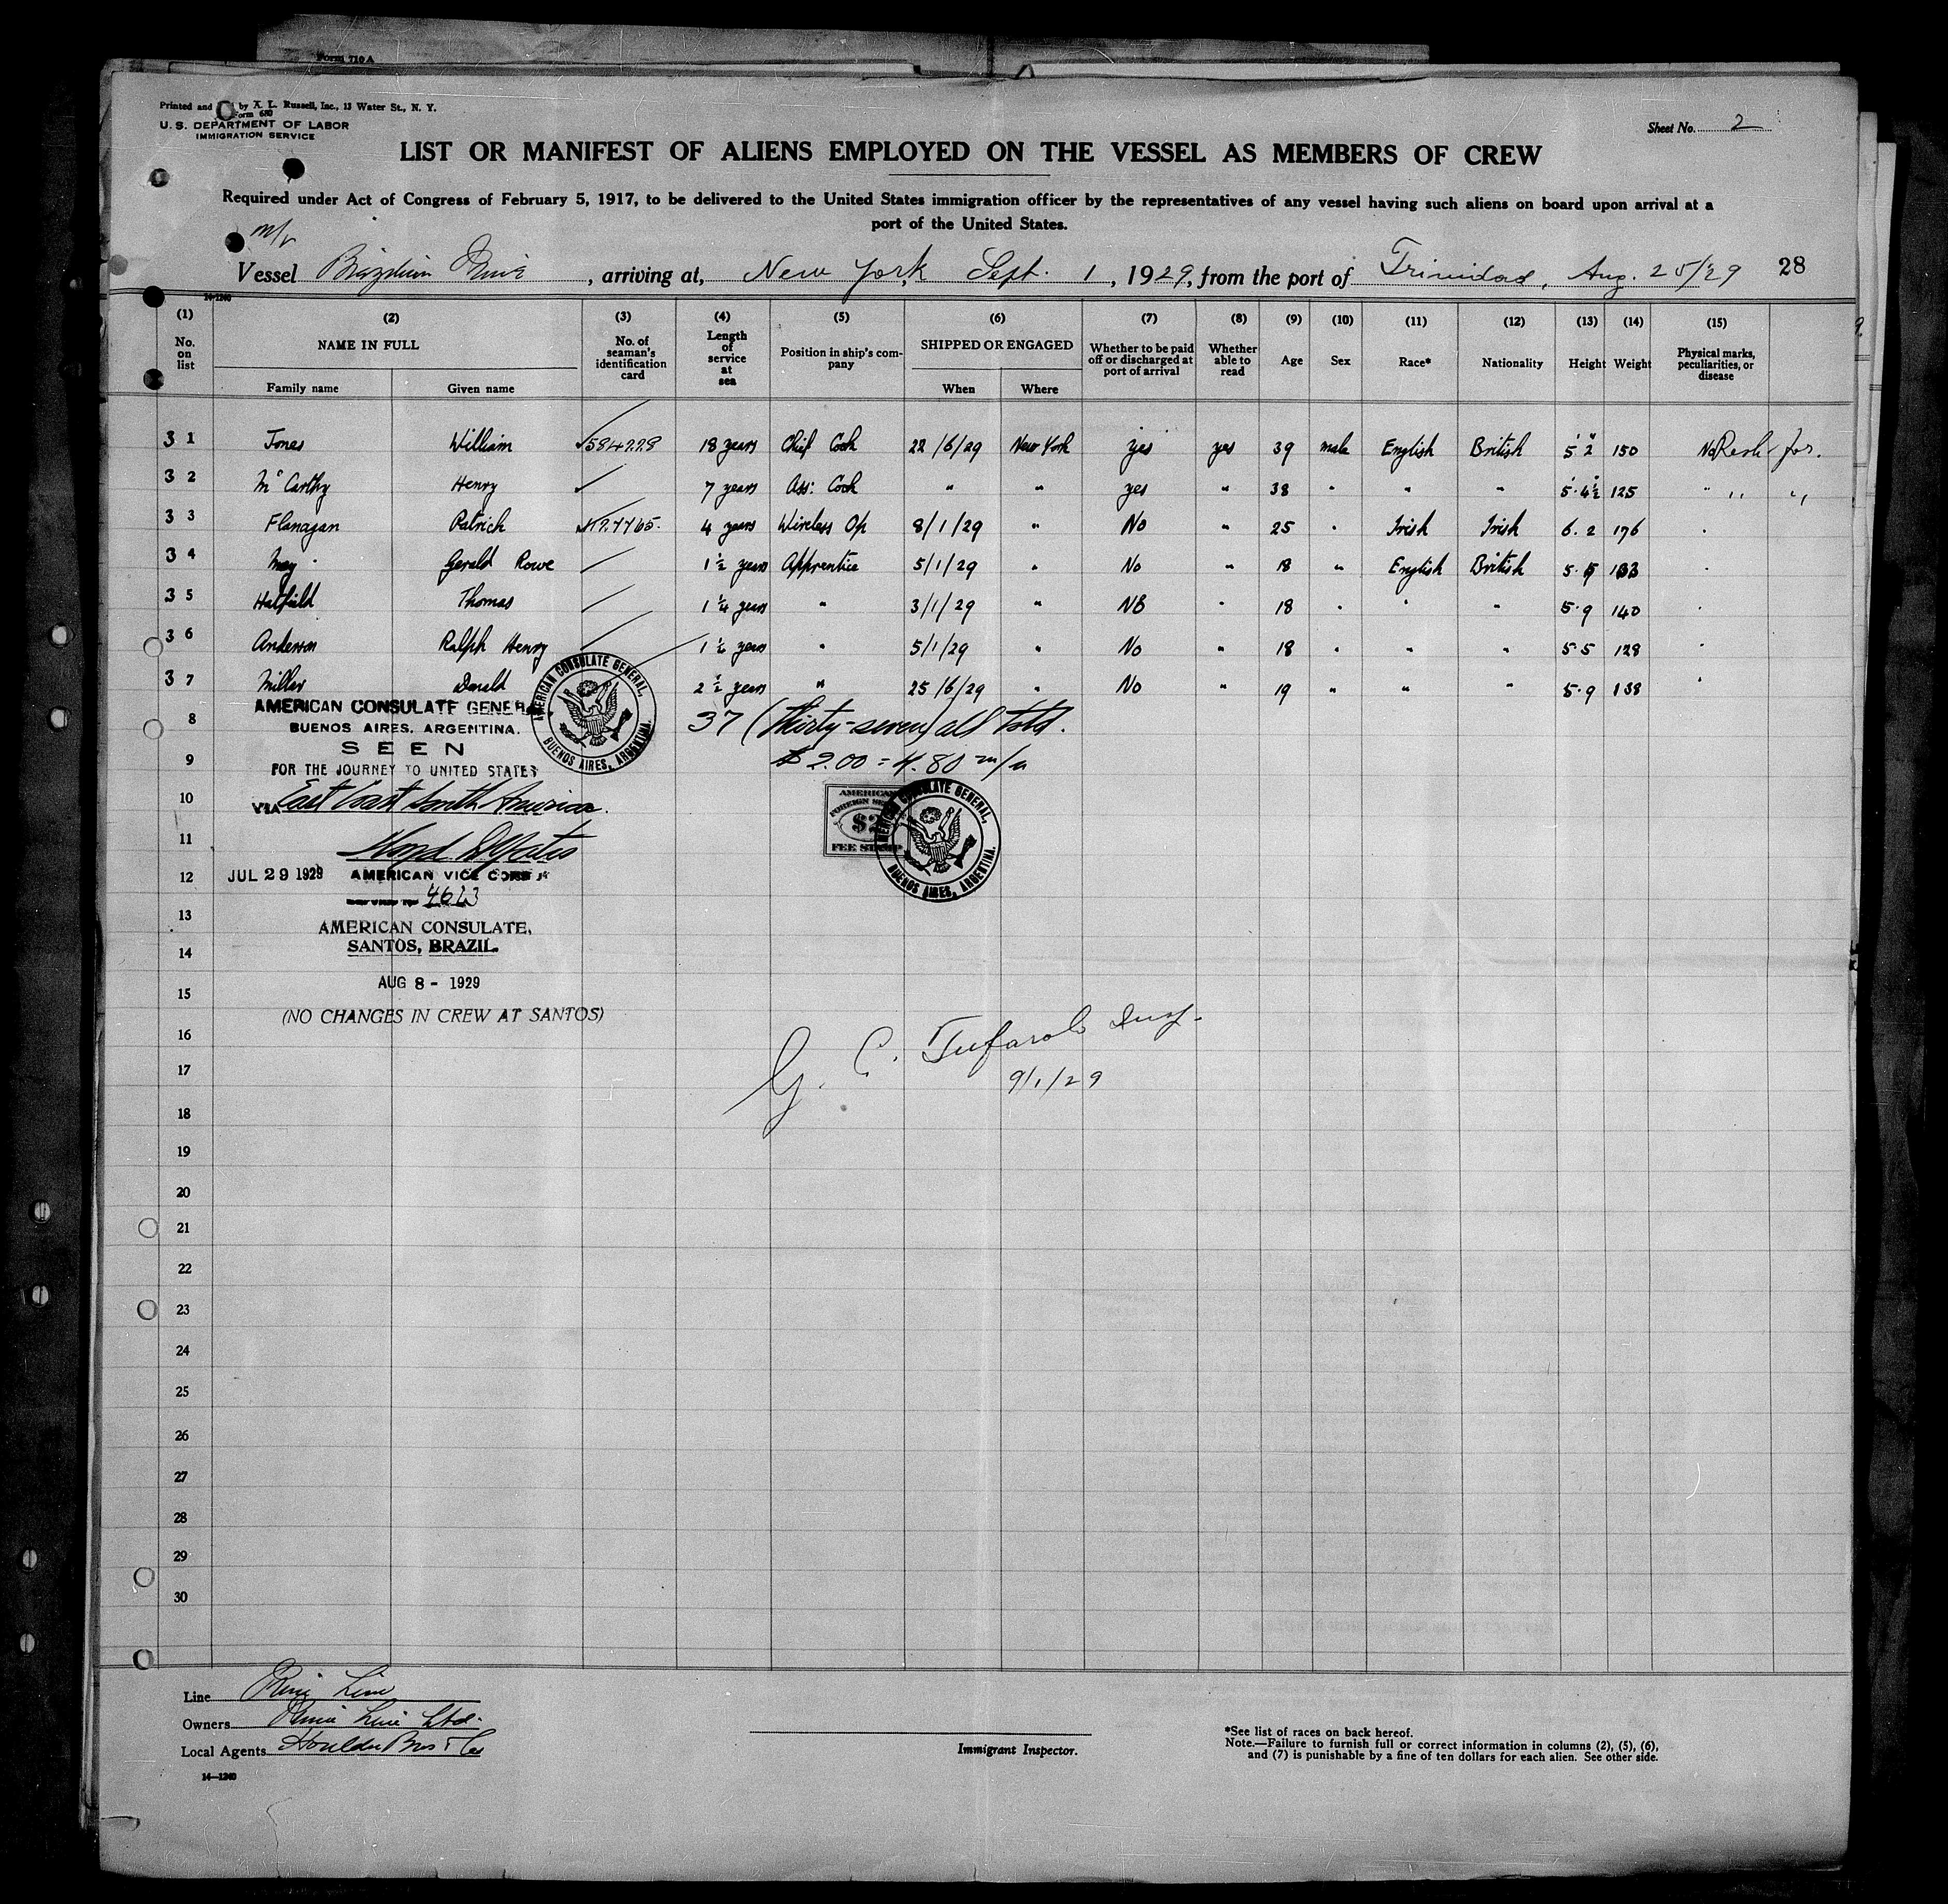 Form 710 A
Printed and by A. L. Russell, Inc., 13 Water St., N. Y.
Form 680
U. S. DEPARTMENT OF LABOR
IMMIGRATION SERVICE
Sheet No. 2
LIST OR MANIFEST OF ALIENS EMPLOYED ON THE VESSEL AS MEMBERS OF CREW
Required under Act of Congress of February 5, 1917, to be delivered to the United States immigration officer by the representatives of any vessel having such aliens on board upon arrival at a
port of the United States.
m/v
Vessel Brazilian Prince, arriving at, New York, Sept. 1, 1929, from the port of Trinidad, Aug. 25/29 28
14-1240
(1) (2) (3) (4) (5) (6) (7) (8) (9) (10) (11) (12) (13) (14) (15)
No. on list NAME IN FULL Family name Given name No. of seaman's identification card Length of service at sea Position in ship's company SHIPPED OR ENGAGED When Where Whether to be paid off or discharged at port of arrival Whether able to read Age Sex Race* Nationality Height Weight Physical marks, peculiarities, or disease
3 1 Jones William 18 years Chief Cook 22/6/29 New York yes yes 39 male English British 5' 2" 150 No
3 2 McCarthy Henry 7 years Ass: Cook " " yes " 38 " " " 5' 4½" 125 " " "
3 3 Flanagan Patrick 4 years Wireless Op 8/1/29 " No " 25 " Irish Irish 6. 2 176 "
3 4 May Gerald Rowe 1½ years Apprentice 5/1/29 " No " 18 " English British 5. 5 133 "
3 5 Hatfield Thomas 1¼ years " 3/1/29 " No " 18 " " " 5.9 140 "
3 6 Anderson Ralph Henry years " 5/1/29 " No " 18 " " " 5.5 128 "
3 7 Millar Donald 2½ years " 25/6/29 " No " 19 " " " 5.9 138 "
AMERICAN CONSULATE GENERAL
8 37 (thirty-seven) all told.
BUENOS AIRES, ARGENTINA.
SEEN
9 $2.00 = 4.80 m/n
FOR THE JOURNEY TO UNITED STATES
AMERICAN CONSULATE GENERAL, BUENOS AIRES, ARGENTINA.
10 VIA East Coast South America.
AMERICAN FOREIGN SERVICE $2 FEE STAMP
AMERICAN CONSULATE GENERAL, BUENOS AIRES, ARGENTINA.
11
12 JUL 29 1929 AMERICAN VICE CONSUL
4623
13 AMERICAN CONSULATE,
14 SANTOS, BRAZIL.
AUG 8 - 1929
15
(NO CHANGES IN CREW AT SANTOS)
16 G. C. Tufarolo Insp.
17 9/1/29
18
19
20
21
22
23
24
25
26
27
28
29
30
Line Prince Line
Owners Prince Line Ltd.
Local Agents Houlder Bros & Co
14—1240
Immigrant Inspector.
*See list of races on back hereof.
Note.—Failure to furnish full or correct information in columns (2), (5), (6),
and (7) is punishable by a fine of ten dollars for each alien. See other side.